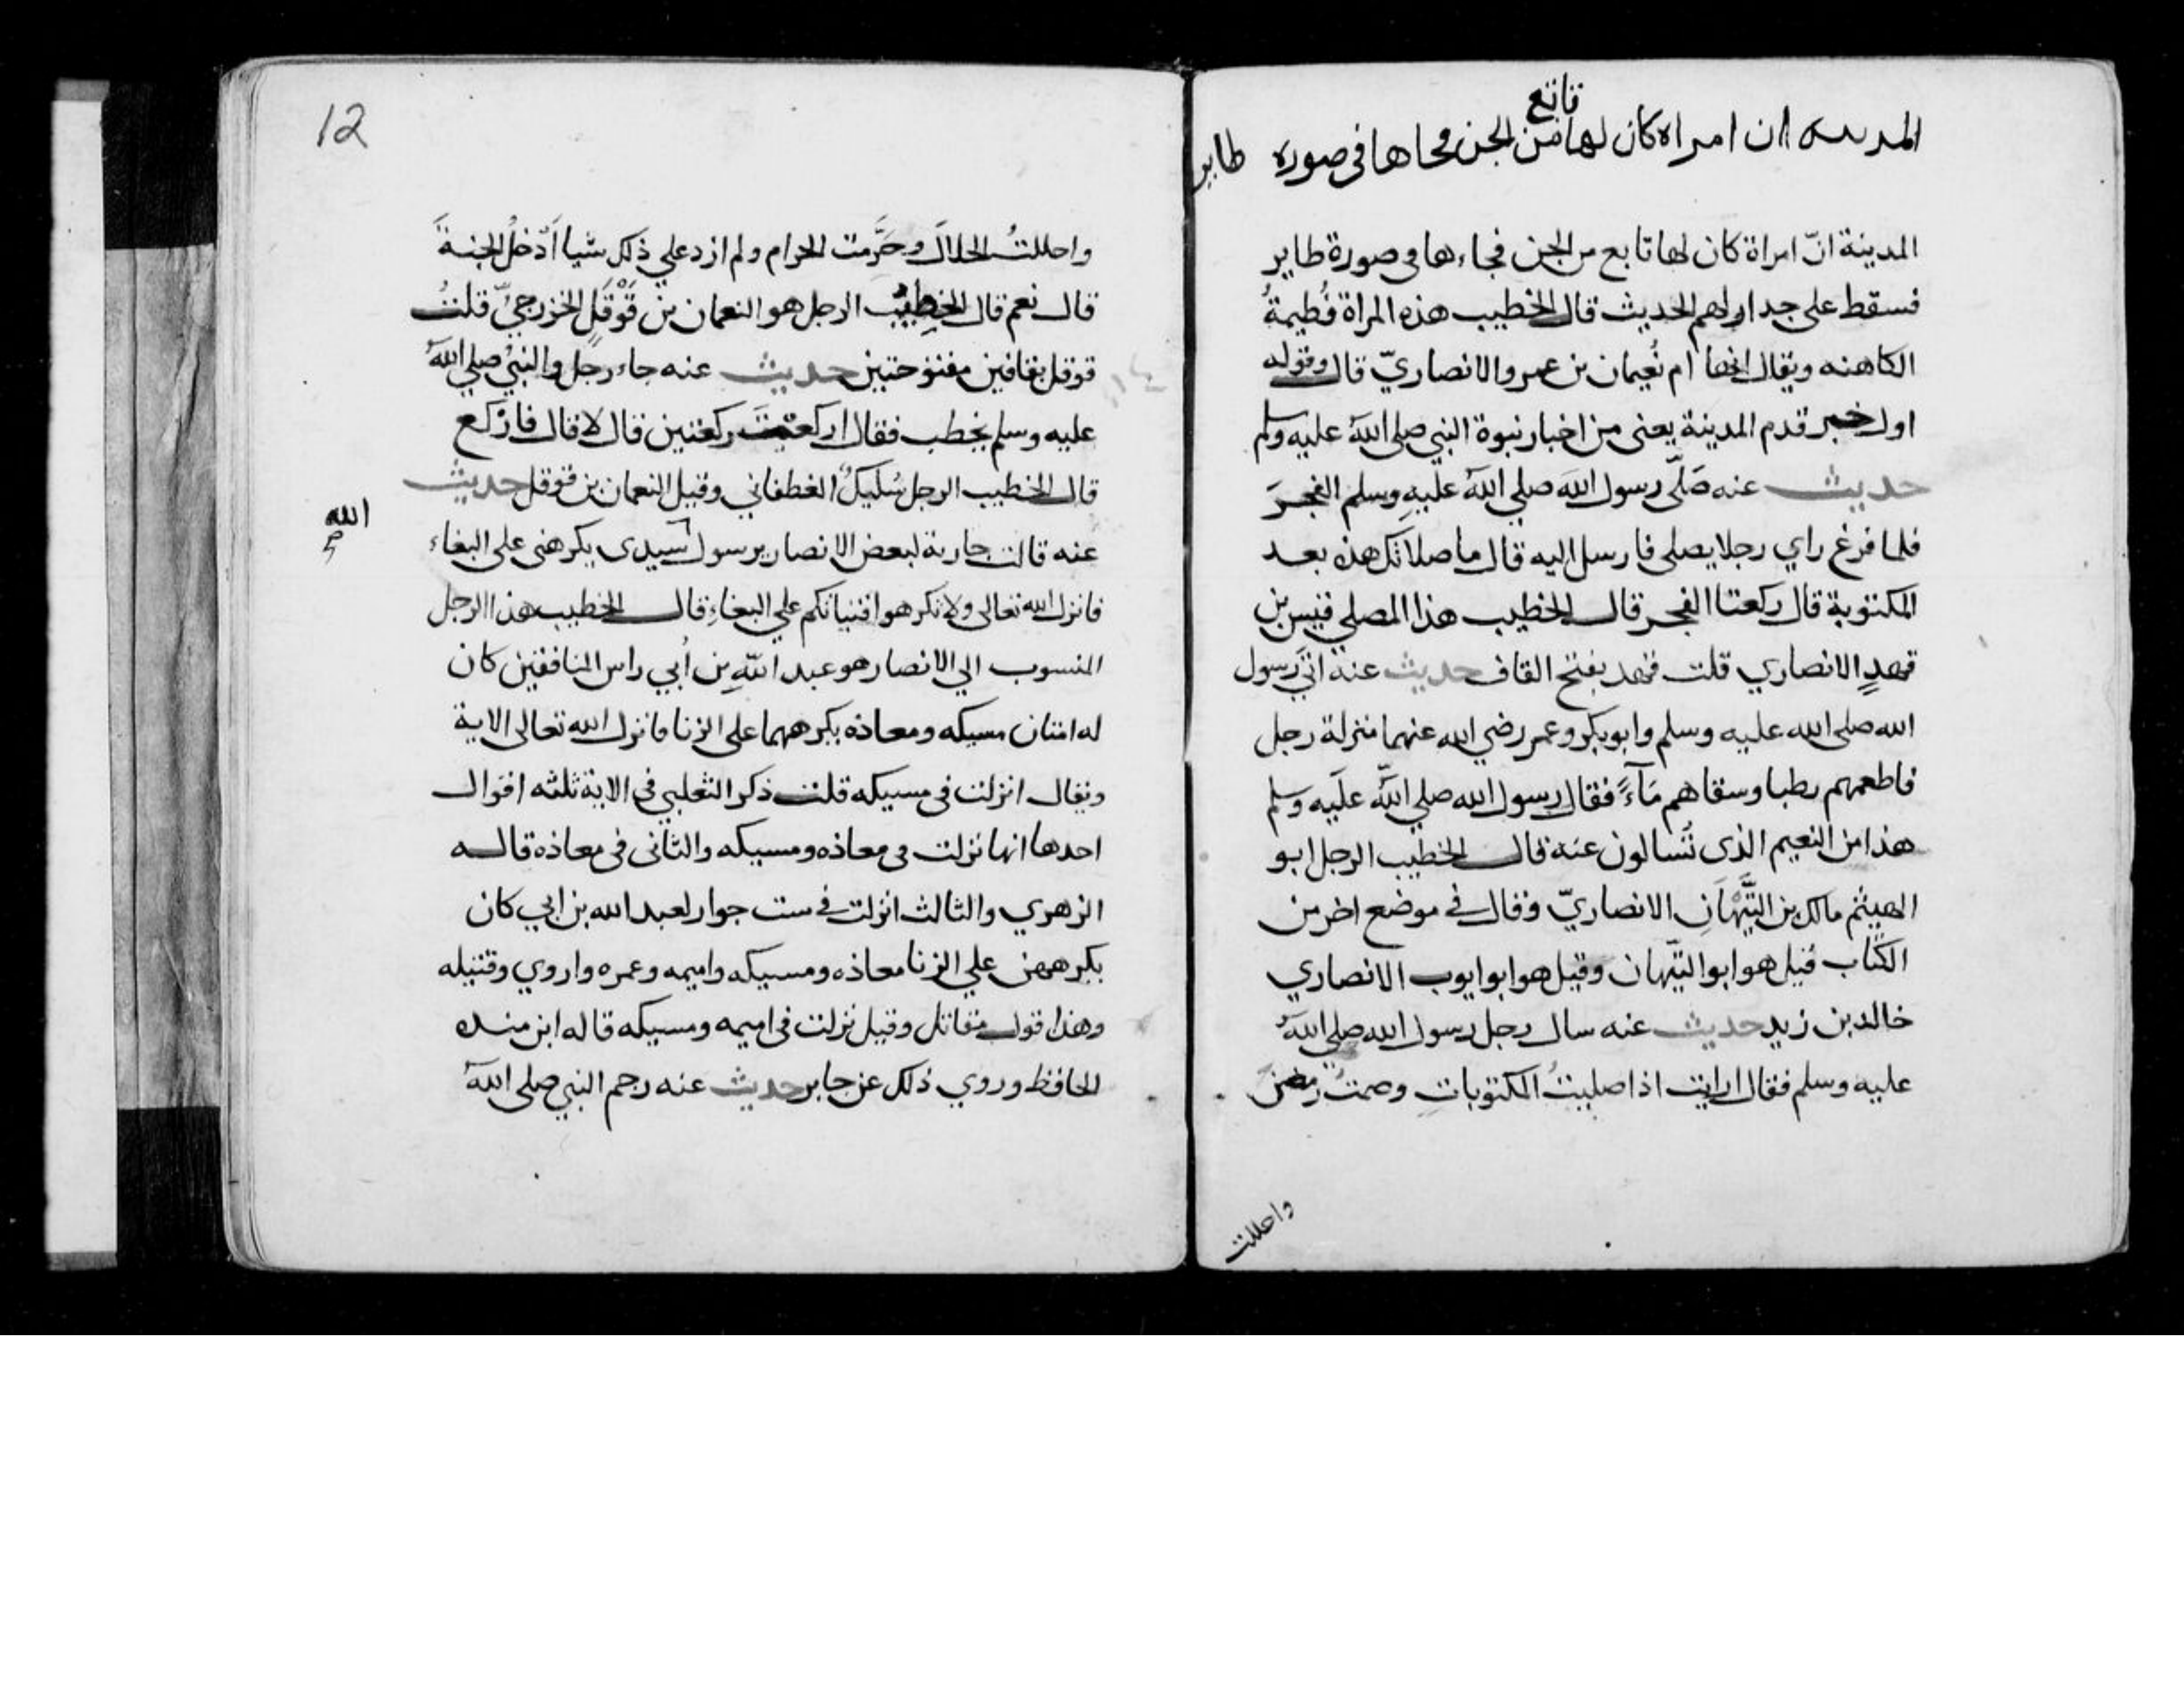 تابع
المدىىىه ان امراه كان لها من الجن فجاها فى صوره طاير
المدينة انّ امراة كان لها تابع من الجن فجاءها فى صورة طاير
فسقط على جدار لهم الحديث قال الخطيب هذه المراة فُطيمةُ
الكاهنه ويقال انها ام نُعيمان بن عمرو الانصاريّ قال وقوله
اول خبر قدم المدينة يعنى من اخبار نبوة النبي صلى الله عليه وسلم
حديث عنه صَلّى رسول الله صلي الله عليهِ وسلم الفجرَ
فلما فرغ راي رجلا يصلى فارسل اليه قال ما صلاتك هذه بعد
المكتوبة قال ركعتا الفجر قال الخطيب هذا المصلي قيس بن
قهدٍ الانصاري قلت قهد بفتح القاف حديث عنه اتي رسول
الله صلى الله عليه وسلم وابو بكر وعمر رضي الله عنهما منزلة رجل
فاطعمهم رطبا وسقاهم مَآءً فقال رسول الله صلي الله عليه وسلم
هذا من النعيم الذى تُسالون عنه قال الخطيب الرجل ابو
الهيثم مالك بن التَّيّهَانِ الانصاريّ وقال في موضع اخر من
الكتاب قيل هو ابو التيّهان وقيل هو ابو ايوب الانصاري
خالد بن زيد حديث عنه سال رجل رسول الله صلي الله
عليه وسلم فقال ارايت اذا صليتُ المكتوباتِ وصمتُ رمضن
واحللت
12
واحللتُ الحلالَ وحَرَّمت الحرام ولم ازد علي ذلك شيا اَدْخلُ الجنةَ
قال نعم قال الخطيب الرجل هو النعمان بن قَوْقَلٍ الخزرجيّ قلتُ
قوقل بقافين مفتوحتين حديث عنه جاء رجل والنبيّ صلي الله
عليه وسلم يخطب فقال اركعتَ ركعتين قال لا قال فارْكع
قال الخطيب الرجل سُليكٌ الغطفاني وقيل النعمان بن قوقل حديث
عنه قالت جارية لبعض الانصار يرسول سيدى يكرهنى على البغاء
الله
صح
فانزل الله تعالى ولا تكرهوا فتياتكم علي البغاءِ قال الخطيب هذا الرجل
المنسوب الي الانصار هو عبد اللهِ بن اُبي راس المنافقين كان
له امتان مسيكه ومعاذه يكرههما على الزنا فانزل الله تعالى الاية
ويقال انزلت فى مسيكه قلت ذكر الثعلبي في الاية ثلثه اقوال
احدها انها نزلت فى معاذه ومسيكه والثانى فى معاذه قاله
الزهري والثالث انزلت في ست جوار لعبد الله بن ابي كان
يكرههن علي الزنا معاذه ومسيكه واميمه وعمره واروي وقتيله
وهذا قول مقاتل وقيل نزلت فى اميمه ومسيكه قاله ابن منده
الحافظ وروي ذلك عن جابر حديث عنه رجم النبي صلى الله